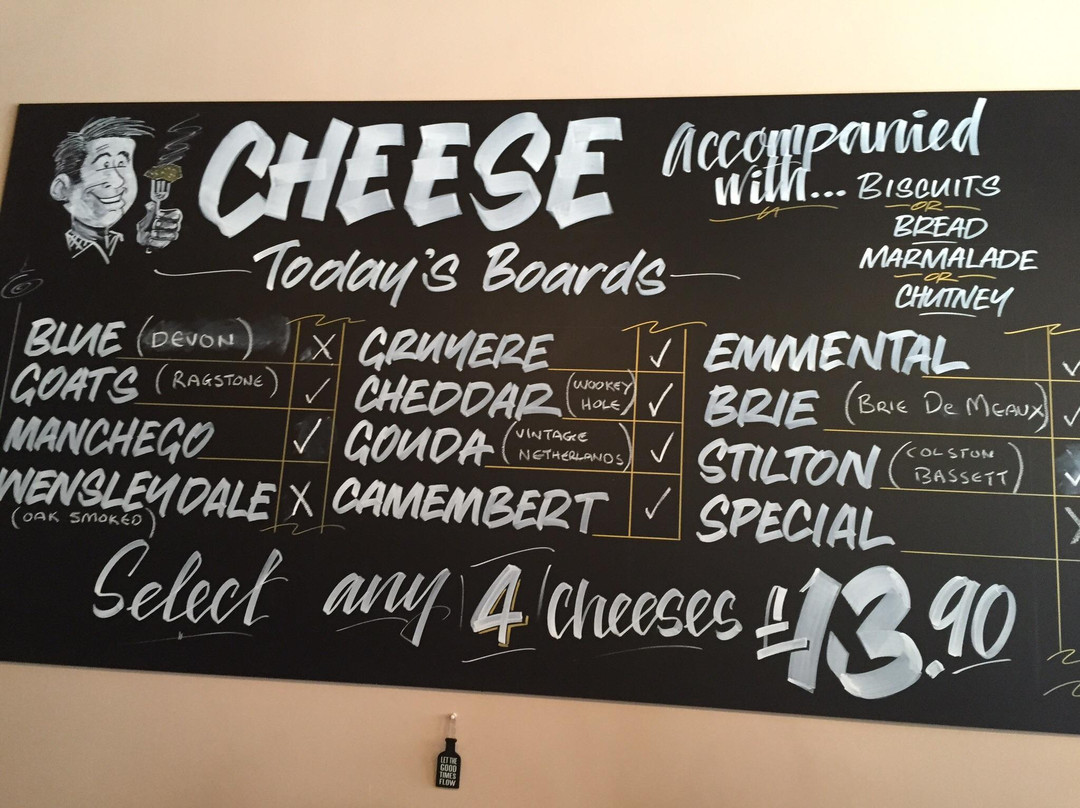 CHEESE
Today's Boards
accompanied
with... BISCUITS
OR
BREAD
MARMALADE
OR
CHUTNEY
BLUE (DEVON) X
GOATS (RAGSTONE) ✓
MANCHEGO ✓
WENSLEYDALE X
(OAK SMOKED)
GRUYERE ✓
CHEDDAR (WOOKEY HOLE) ✓
GOUDA (VINTAGE NETHERLANDS) ✓
CAMEMBERT ✓
EMMENTAL ✓
BRIE (BRIE DE MEAUX) ✓
STILTON (COLSTON BASSETT) ✓
SPECIAL X
Select any 4 cheeses £13.90
©
LET THE
GOOD
TIMES
FLOW